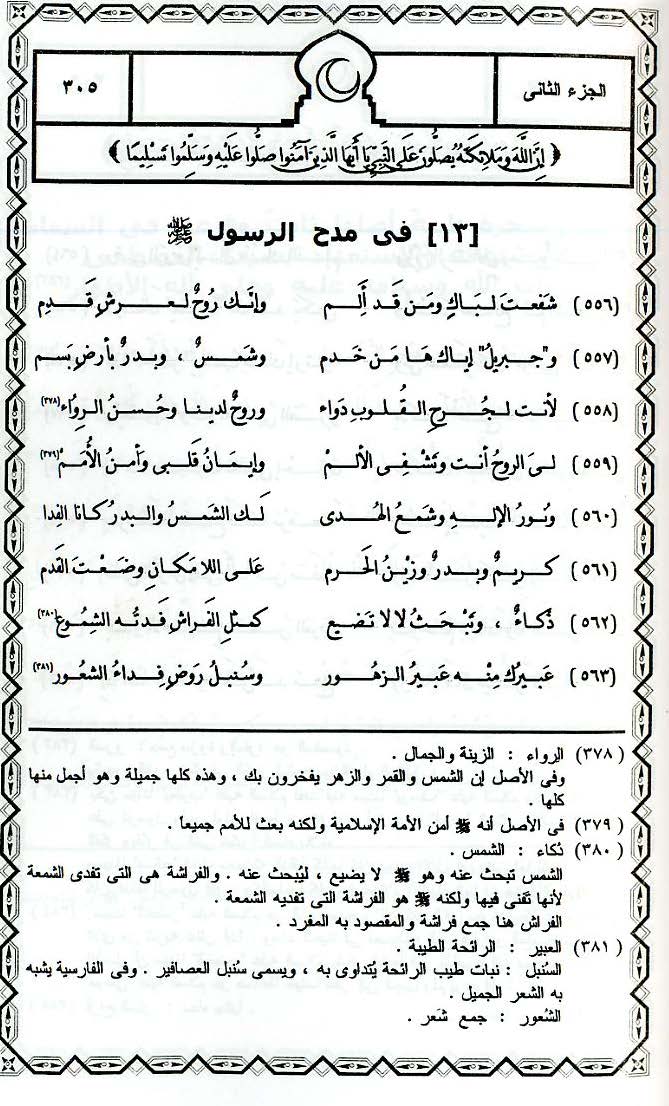 الجزء الثانى
٣٠٥
﴿ إِنَّ اللَّهَ وَمَلَائِكَتَهُ يُصَلُّونَ عَلَى النَّبِيِّ يَا أَيُّهَا الَّذِينَ آمَنُوا صَلُّوا عَلَيْهِ وَسَلِّمُوا تَسْلِيمًا ﴾
[١٣] فى مدح الرسول ﷺ
(٥٥٦) شفعتَ لبَاكٍ ومَن قد أَلِم وإنك روحٌ لعرشٍ قَدِم
(٥٥٧) و"جبريلُ" إياك هَا مَن خَدم وشمسٌ ، وبدرٌ بأرضٍ بَسم
(٥٥٨) لأنت لجُرحِ القُلوبِ دَواء وروحٌ لدينا وحُسنُ الرِواء(٣٧٨)
(٥٥٩) لىَ الروحُ أنت وتَشْفِى الألم وإيمَانُ قلبى وأمنُ الأُمَم(٣٧٩)
(٥٦٠) ونورُ الإلهِ وشمعُ الهُدى لك الشمسُ والبدرُ كانا الفِدا
(٥٦١) كريمٌ وبدرٌ وزينُ الحَرم على اللا مكانِ وضعْتَ القدم
(٥٦٢) ذكاءٌ ، وتَبْحَثُ لا لا تضيع كمثلِ الفَراشِ فدتْه الشِمُوع(٣٨٠)
(٥٦٣) عَبيرُك مِنْه عَبيرُ الزهُور وسُنبلُ رَوضٍ فِداءُ الشعُور(٣٨١)
(٣٧٨) الرواء : الزينة والجمال .
وفى الأصل إن الشمس والقمر والزهر يفخرون بك ، وهذه كلها جميلة وهو أجمل منها
كلها .
(٣٧٩) فى الأصل أنه ﷺ أمن الأمة الإسلامية ولكنه بعث للأمم جميعاً .
(٣٨٠) ذُكاء : الشمس .
الشمس تبحث عنه وهو ﷺ لا يضيع ، ليُبحث عنه . والفراشة هى التى تفدى الشمعة
لأنها تفنى فيها ولكنه ﷺ هو الفراشة التى تفديه الشمعة .
الفراش هنا جمع فراشة والمقصود به المفرد .
(٣٨١) العبير : الرائحة الطيبة .
السُنبل : نبات طيب الرائحة يُتداوى به ، ويسمى سُنبل العصافير . وفى الفارسية يشبه
به الشعر الجميل .
الشُعور : جمع شَعر .